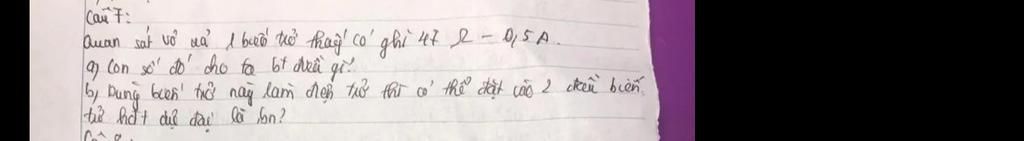 Câu 7:
Quan sát vỏ của 1 biến trở thấy có ghi 47 Ω - 0,5A.
a) Con số đó cho ta bt điều gì?
b, Dùng biến trở này làm điện trở thì có thể đặt vào 2 đầu biến
trở hđt cực đại là bn?